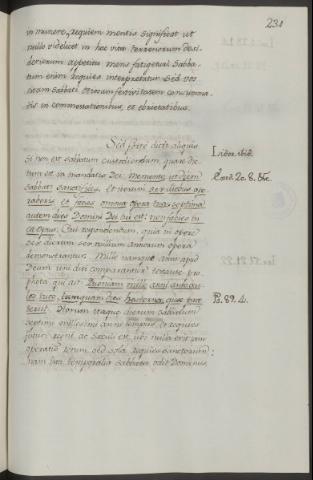 231
in numero, requiem mentis significat ut
nullo videlicet in hac vita terrenorum desi-
deriorum appetitu mens fatigetur. Sabba-
tum enim requies interpretatur. Sed vos
vestram sabbati otiorum festivitatem consumma-
tis in commessationibus, et ebrietatibus.
Sed forte dicit aliquis
Si non est sabbatum custodiendum, quare dic-
tum est in mandatis Dei: Memento ut diem
sabbati sanctifices, et iterum sex diebus ope-
raberis et facies omnia opera tua: septima
autem dies Domini Dei tui est: non facies in
ea opus. Cui respondendum, quia in opere
sex dierum sex millium annorum opera
demonstrantur. Mille namque anni apud
Deum uni diei comparantur testante pro-
pheta qui ait: Quoniam mille anni ante ocu-
los tuos, tamquam dies hesterna, quae prae-
teriit. Horum itaque dierum sabbatum
septimi millesimi anni tempus, et requies
futuri
est, ubi nulla erit jam
operatio rerum, sed sola requies sanctorum:
nam haec temporalia sabbata odit Dominus
Liber ibid.
Exod. 20. 8. etc.
Ps. 89. 4.